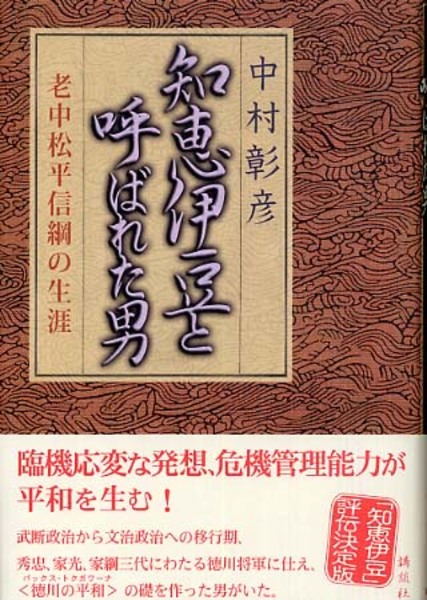 中村彰彦
知恵伊豆と
呼ばれた男
老中松平信綱の生涯
臨機応変な発想、危機管理能力が
平和を生む!
武断政治から文治政治への移行期、
秀忠、家光、家綱三代にわたる徳川将軍に仕え、
パックス・トクガワーナ
<徳川の平和>の礎を作った男がいた。
「知恵伊豆」
評伝決定版
講談社